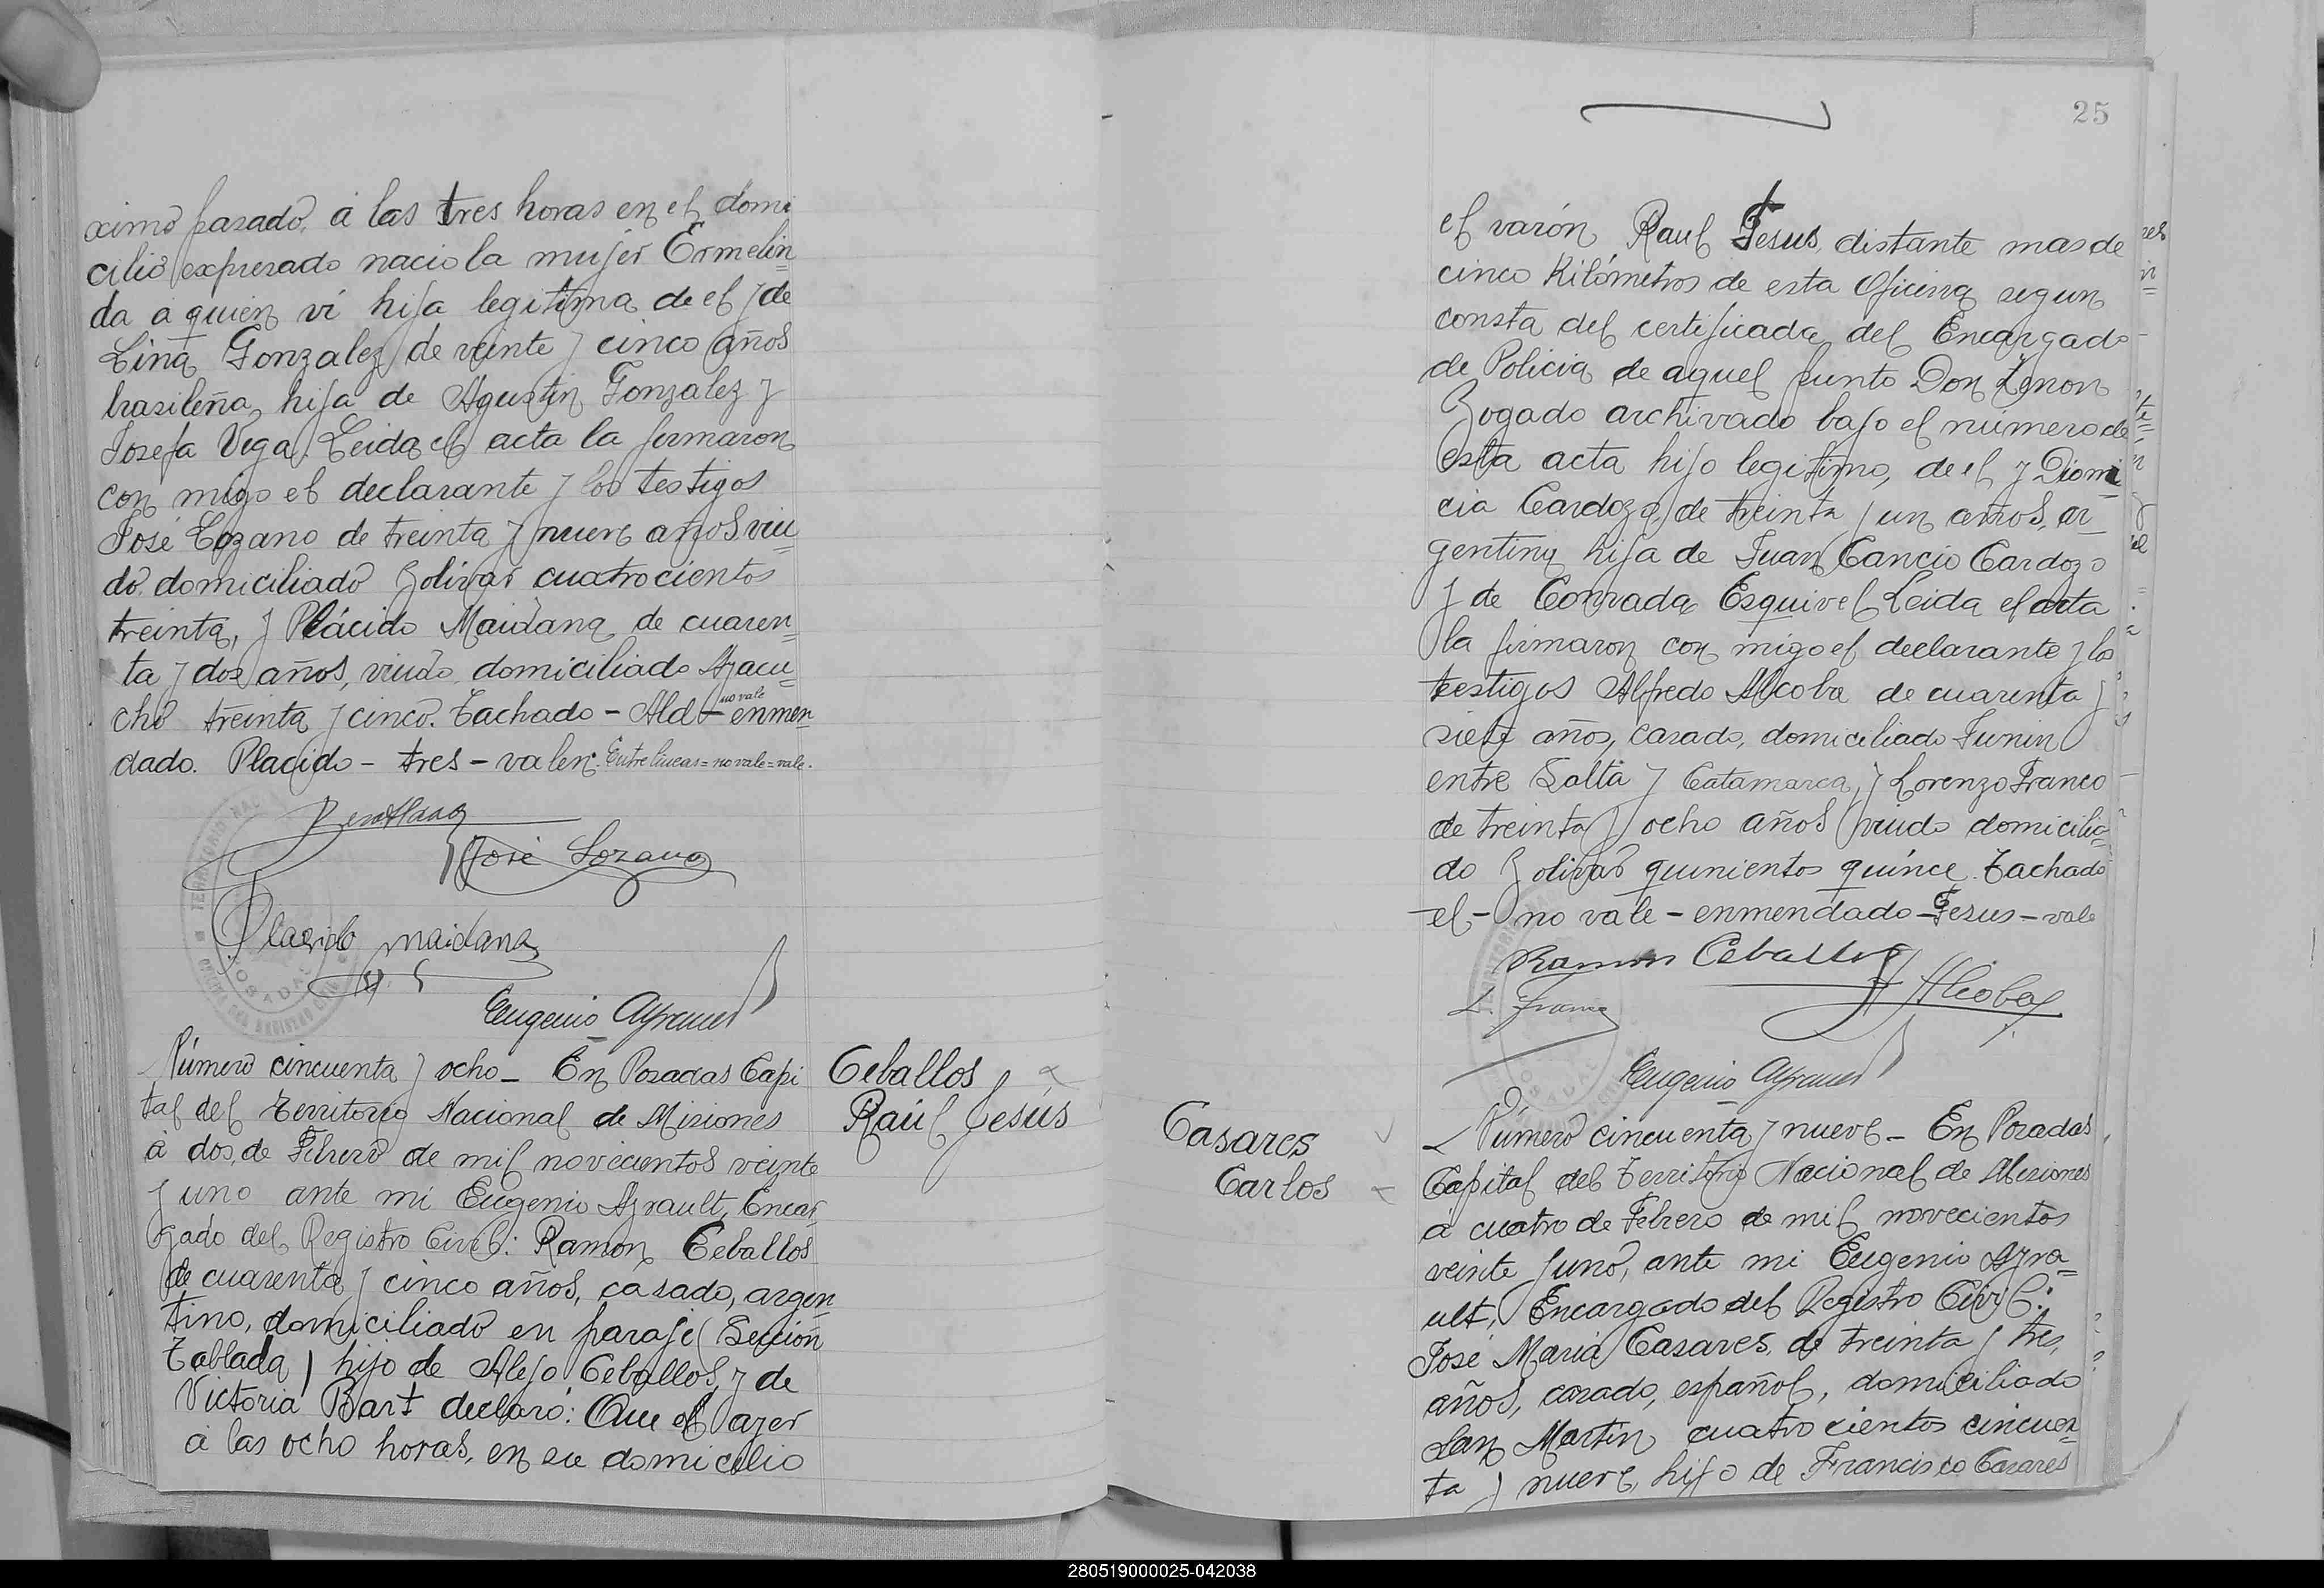 ximo pasado, á las tres horas en el domi
cilio expresado nacio la mujer Ermelin
da á quien ví hija legitima de el y de
Lina Gonzalez de veinte y cinco años
brasileña, hija de Agustin Gonzalez y
Josefa Vega. Leida el acta la firmaron
con migo el declarante y los testigos
José Lozano de treinta y nueve años viu
do, domiciliado Bolivar cuatrocientos
treinta, y Plácido Maidana de cuaren
ta y dos años, viudo domiciliado Ayacu
no vale
cho treinta y cinco. Tachado - Ald - enmen
dado. Placido - tres - valen. Entre lineas = no vale = vale.
José Lozano
Placido maidana
Eugenio Ayrault
Número cincuenta y ocho - En Posadas Capi
tal del Territorio Nacional de Misiones
á dos de Febrero de mil novecientos veinte
y uno ante mi Eugenio Ayrault, Encar
gado del Registro Civil: Ramon Ceballos
de cuarenta y cinco años, casado, argen
tino, domiciliado en paraje (Sección
Tablada) hijo de Alejo Ceballos y de
Victoria Bart declaró: Que el ayer
á las ocho horas, en su domicilio
Ceballos
Raúl Jesús
25
el varón Raul Jesus, distante mas de
cinco Kilómetros de esta Oficina segun
consta del certificado del Encargado
de Policia de aquel punto Don Zenon
Bogado archivado bajo el número de
esta acta hijo legitimo, de el y Dioni
cia Cardozo, de treinta y un años, ar
gentina hija de Juan Cancio Cardozo
y de Conrada Esquivel. Leida el acta
la firmaron con migo el declarante y lo
testigos Alfredo Alcoba de cuarenta y
siete años, casado, domiciliado Junin
entre Salta y Catamarca, y Lorenzo Franco
de treinta y ocho años viudo domicilia
do Bolivar quinientos quince. Tachado
-el- no vale - enmendado - Jesus - vale
Ramon Ceballos
A Alcoba
L. Franco
Eugenio Ayrault
Casares
Carlos
Número cincuenta y nueve - En Posadas
Capital del Territorio Nacional de Misiones
a cuatro de Febrero de mil novecientos
veinte y uno, ante mi Eugenio Ayra
ult, Encargado del Registro Civil:
José Maria Casares, de treinta y tres,
años, casado, español, domiciliado
San Martin cuatro cientos cincuen
ta y nueve, hijo de Francisco Casares
280519000025-042038